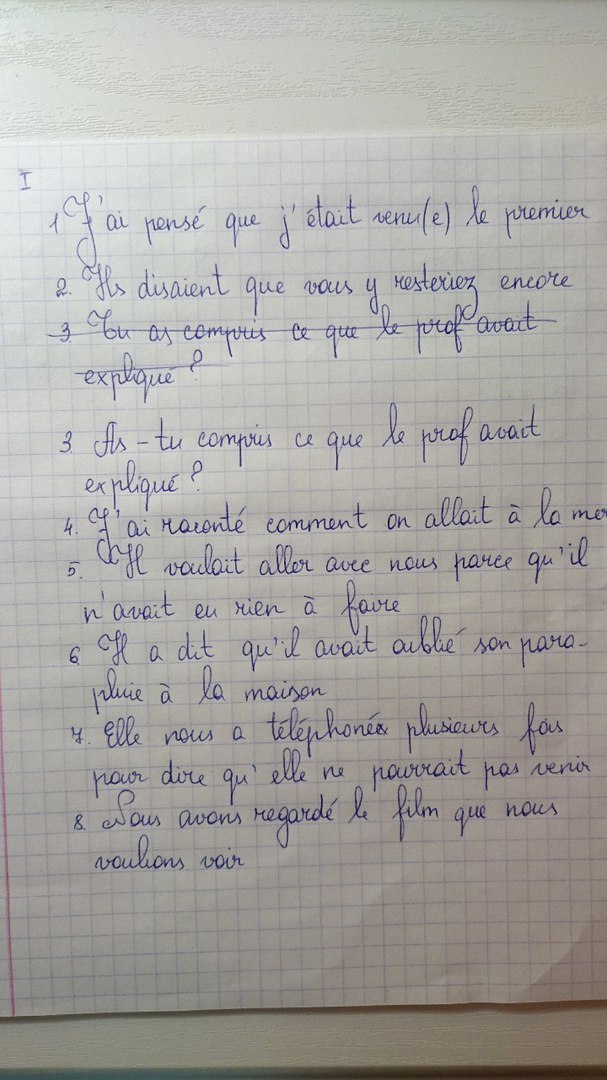 I
1 J'ai pensé que j'était venu(e) le premier
2. Ils disaient que vous y resteriez encore
3 Tu as compris ce que le prof avait
expliqué ?
3 As-tu compris ce que le prof avait
expliqué ?
4. J'ai raconté comment on allait à la mer
5. Il voulait aller avec nous parce qu'il
n'avait eu rien à faire
6 Il a dit qu'il avait oublié son para-
pluie à la maison
7. Elle nous a téléphoné plusieurs fois
pour dire qu'elle ne pourrait pas venir
8. Nous avons regardé le film que nous
voulions voir